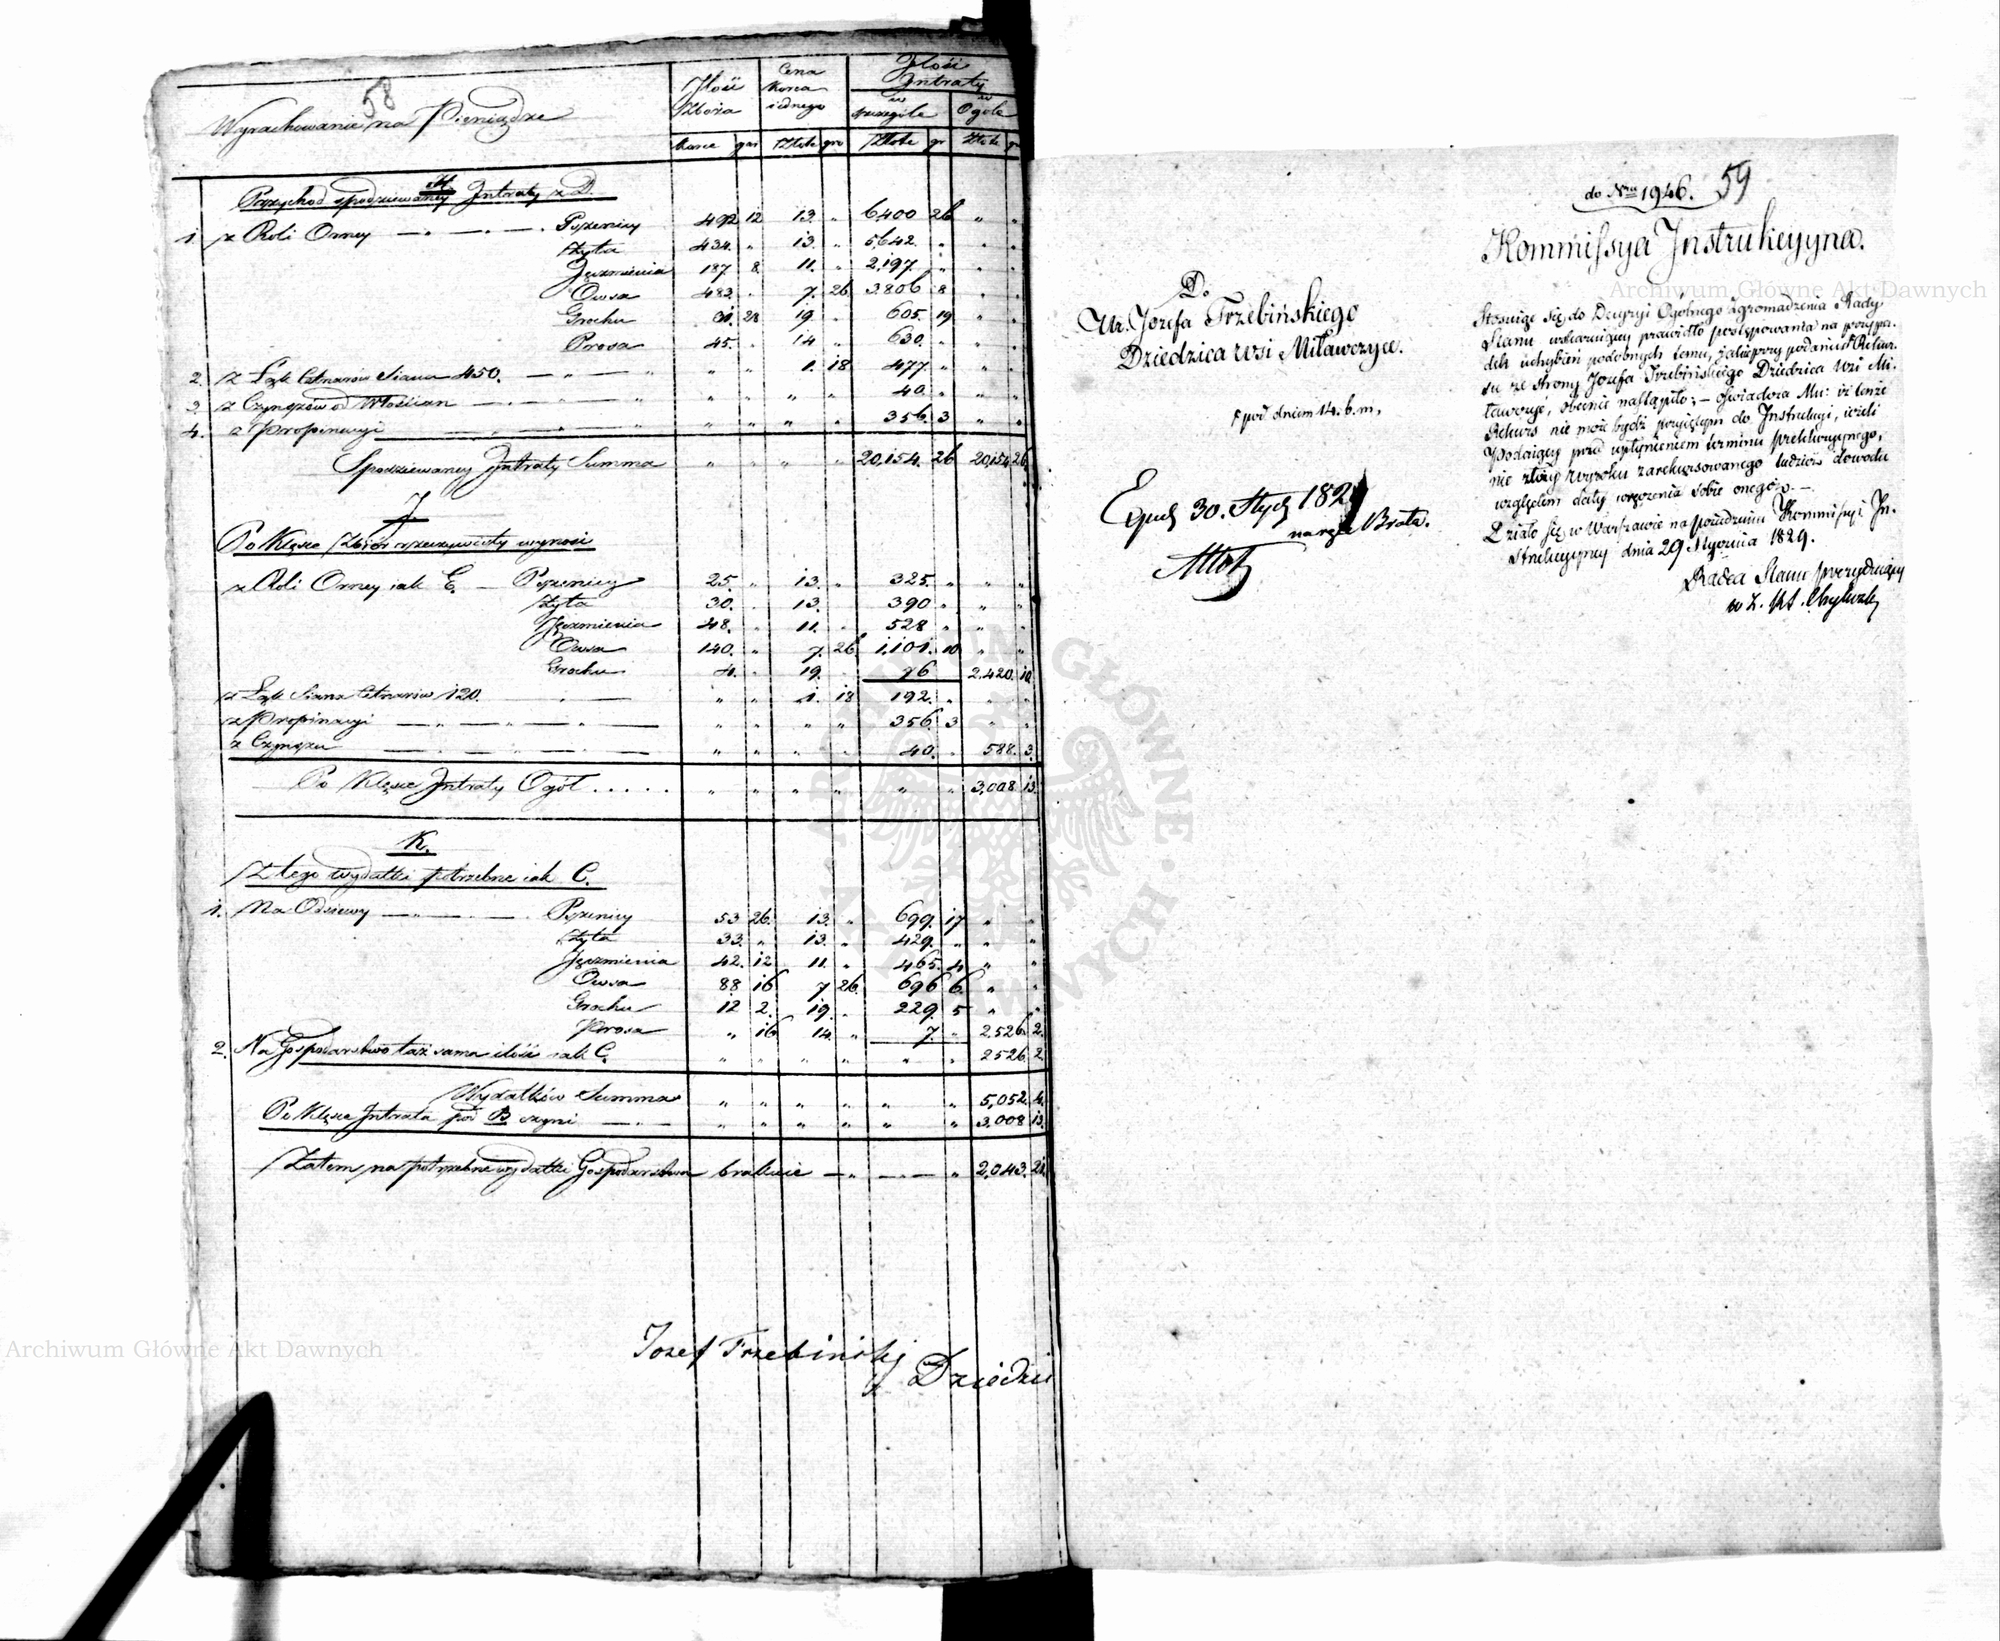 58
Wyrachowanie na Pieniądze
Ilość Zboża
Cena Korca iednego
Ilość Intraty
w szczególe
w Ogóle
Korce gar Złote gro Złote gr Złote gr
H.
Przychod spodziewaney Intraty z D.
1. z Roli Orney — Pszenicy 492 12 13. " 6400 26 " "
Żyta 434. " 13. " 5642. " " "
Jęczmienia 187. 8 11. " 2,197. " " "
Owsa 483. " 7. 26 3806 8 " "
Grochu 31. 28 19. " 605. 19 " "
Prosa 45. " 14 " 630. " " "
2. z Łąk Cetnarów Siana 450. — " " 1. 18 477. " " "
3. z Czynszów od Włościan — " " " " 40. " " "
4. z Propinacyi — " " " " 356. 3 " "
Spodziewaney Intraty Summa " " " " 20,154. 26 20,154 26
J
Po Klęsce Zbiór rzeczywisty wynosi
z Roli Orney iak E. — Pszenicy 25. " 13. " 325. " " "
Żyta 30. " 13. " 390 " " "
Jęczmienia 48. " 11. " 528 " " "
Owsa 140. " 7. 26 1,101. 10 " "
Grochu 4. " 19. " 76 2,420. 10
z Łąk Siana Cetnarów 120. — " " 1. 18 192. " " "
z Propinacyi — " " " " 356. 3 " "
z Czynszu — " " " " 40. " 588. 3.
Po Klęsce Intraty Ogół . . . . . " " " " " " 3,008 13.
K.
Z tego wydatki potrzebne iak C.
1. Na Odsiewy — Pszenicy 53 26. 13. " 699. 17 " "
Żyta 33. " 13. " 429. " " "
Jęczmienia 42. 12 11. " 465. 4. " "
Owsa 88 16 7 26. 696 6. " "
Grochu 12 2. 19. " 229. 5 " "
Prosa " 16 14. " 7. " 2,526. 2.
2. Na Gospodarstwo taż sama ilość iak C. " " " " " " 2526. 2
Wydatków Summa " " " " " " 5,052. 4.
Po Klęsce Intrata pod B czyni — " " " " " " 3,008 13.
Zatem na potrzebne wydatki Gospodarstwa brakuie — " — " 2,043. 21.
Jozef Trzebinski
Dziedzic
do Nru 1946. 59
Kommissya Instrukcyyna.
Do
Ur. Jozefa Trzebińskiego
Dziedzica wsi Miławczyce.
pod dniem 14. b. m,
Exped 30. Stycz 1829
na ręce Brata.
Stosuiąc się do Decyzyi Ogólnego Zgromadzenia Rady
Stanu wskazuiącey prawidło postępowania na przypa-
dek uchybień podobnych temu, iakie przy podaniu Rekur-
su ze strony Jozefa Trzebińskiego Dziedzica Wsi Mi-
ławczyc, obecnie nastąpiło; — oświadcza Mu: iż tenże
Rekurs nie może bydź przyiętym do Instrukcyi, ieżeli
Podaiący przed upłynieniem terminu prekluzyynego,
nie złoży wyroku zarekursowanego tudzież dowodu
względem daty wręczenia sobie onegoż. —
Działo się w Warszawie na posiedzeniu Kommissyi In-
strukcyyney dnia 29 Stycznia 1829.
Radca Stanu prezyduiący
Archiwum Główne Akt Dawnych
Archiwum Główne Akt Dawnych
ARCHIWUM GŁÓWNE AKT DAWNYCH